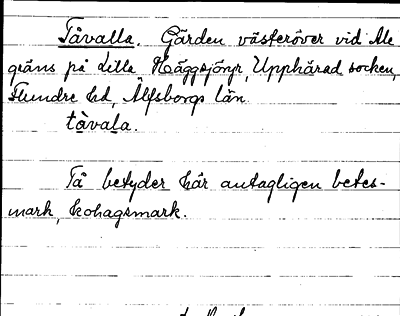 Tåvalla. Gården västeröver vid Ale
gräns på Lilla Häggsjöryr, Upphärad socken,
Flundre hd, Älfsborgs län.
tåvala.
Tå betyder här antagligen betes-
mark, kohagsmark.